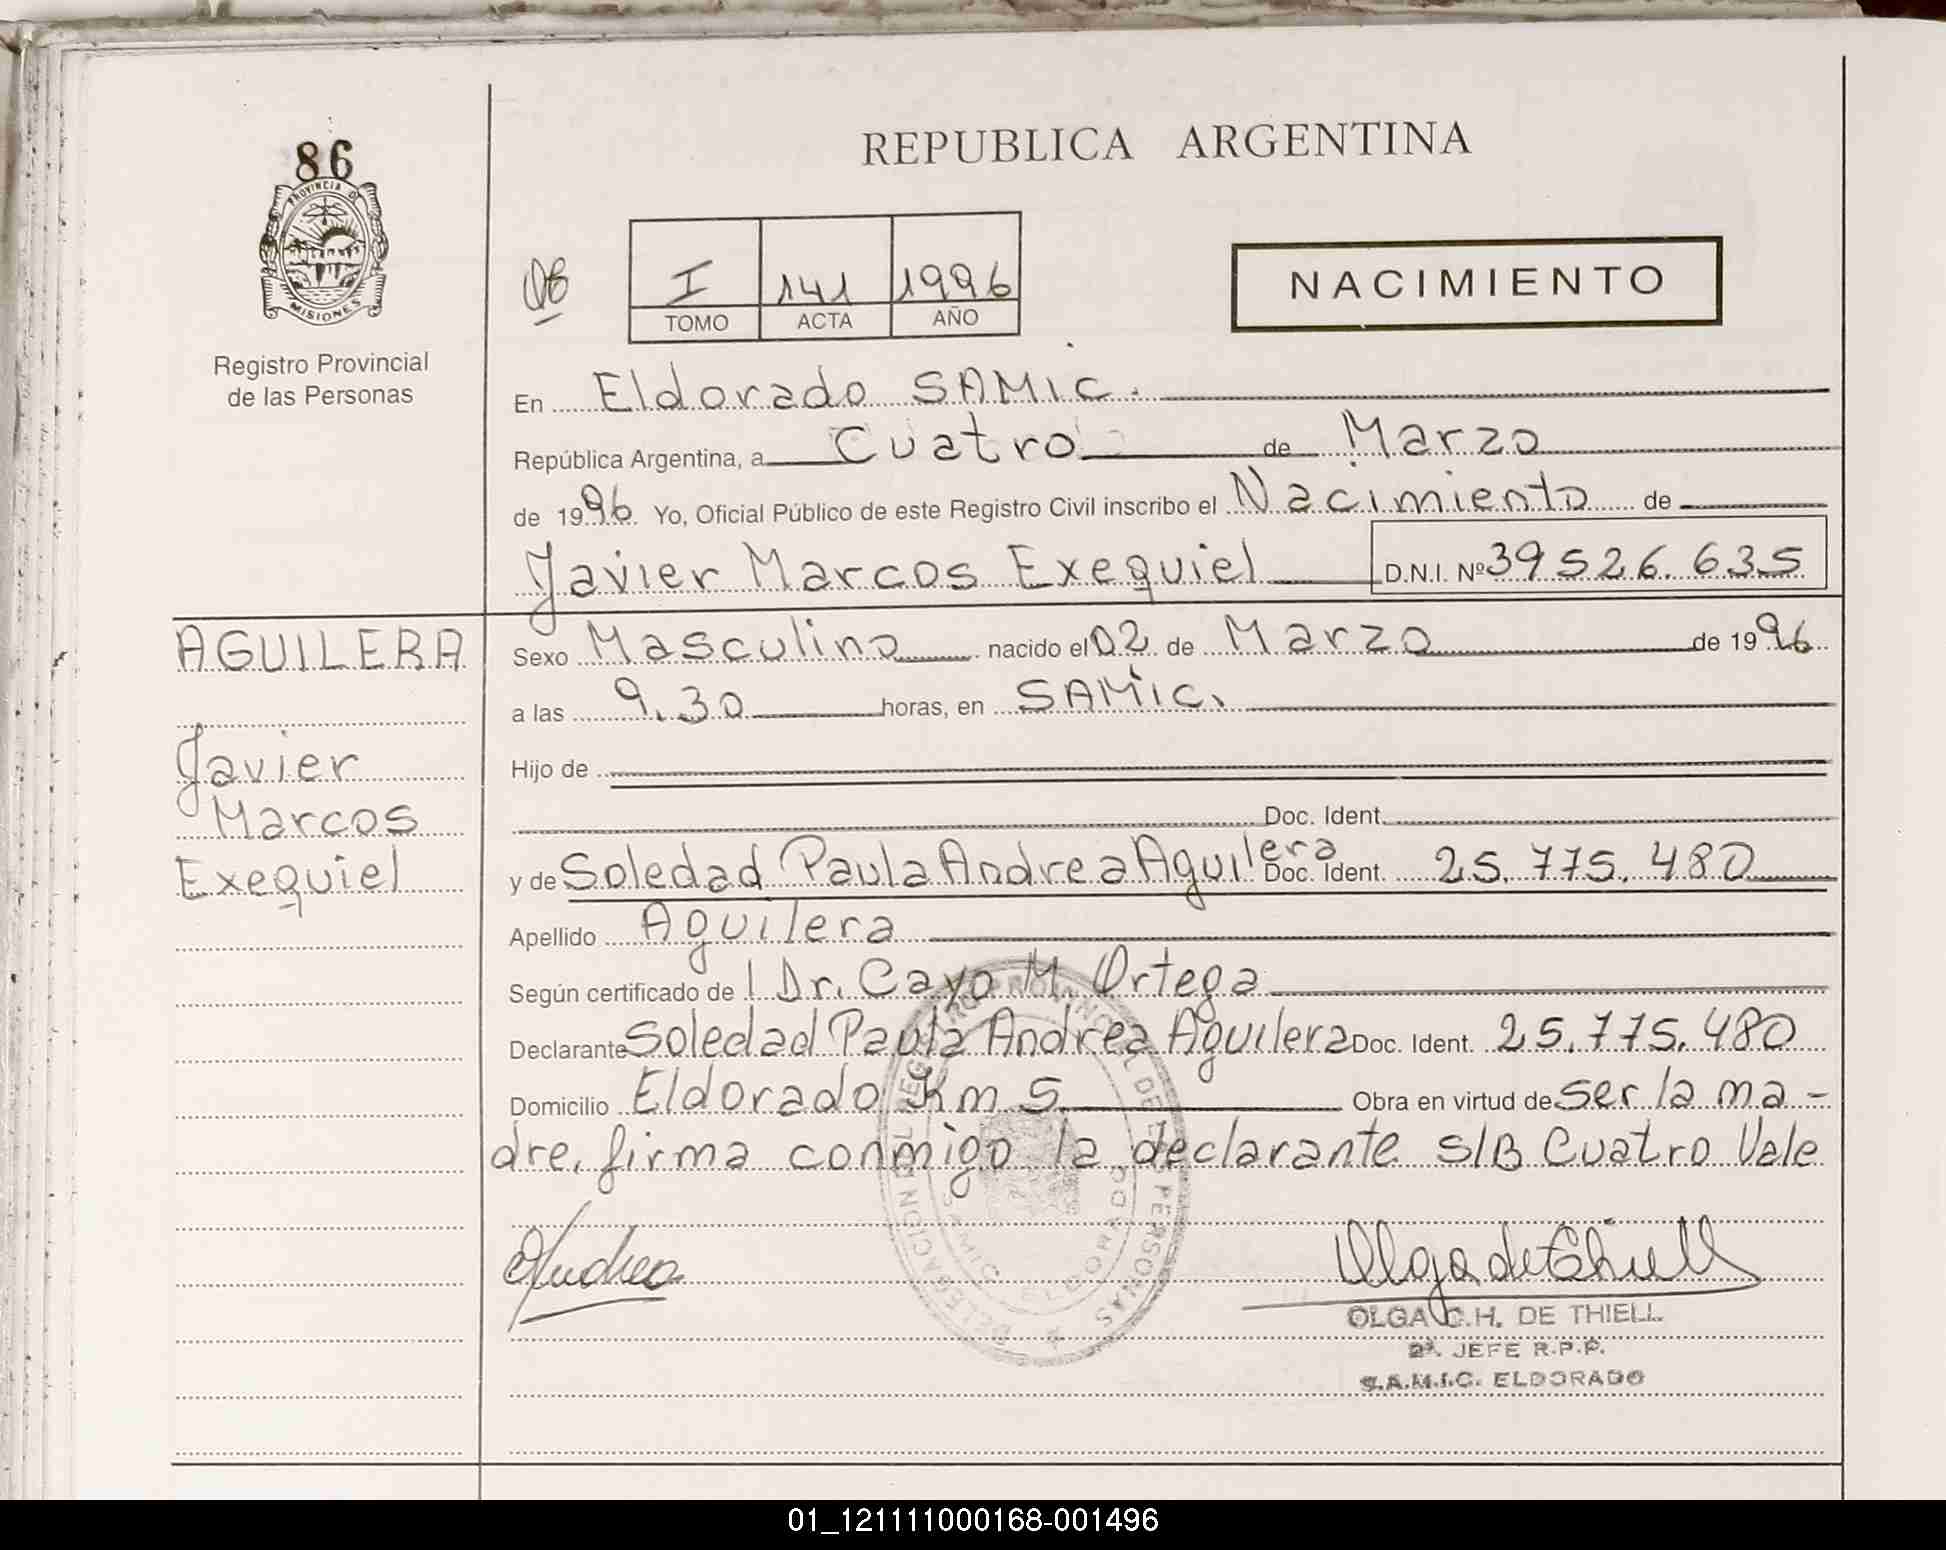 86
PROVINCIA D
MISIONES
Registro Provincial
de las Personas
REPUBLICA ARGENTINA
I 141 1996
TOMO ACTA AÑO
NACIMIENTO
En Eldorado SAMIC.
República Argentina, a Cuatro de Marzo
de 1996 Yo, Oficial Público de este Registro Civil inscribo el Nacimiento de
Javier Marcos Exequiel D.N.I. Nº 39526.635
AGUILERA
Javier
Marcos
Exequiel
Sexo Masculino nacido el 02 de Marzo de 1996
a las 9.30 horas, en SAMIC.
Hijo de
Doc. Ident.
y de Soledad Paula Andrea Aguilera Doc. Ident. 25.775.480
Apellido Aguilera
Según certificado de l Dr. Cayo M. Ortega
Declarante Soledad Paula Andrea Aguilera Doc. Ident. 25.775.480
Domicilio Eldorado Km 5 Obra en virtud de ser la ma-
dre, firma conmigo la declarante S/B Cuatro Vale
Andrea
Olga de Thiell
OLGA C.H. DE THIELL
2ª. JEFE R.P.P.
S.A.M.I.C. ELDORADO
DELEGACION DEL REGISTRO PROVINCIAL DE LAS PERSONAS
SAMIC ELDORADO
01_121111000168-001496